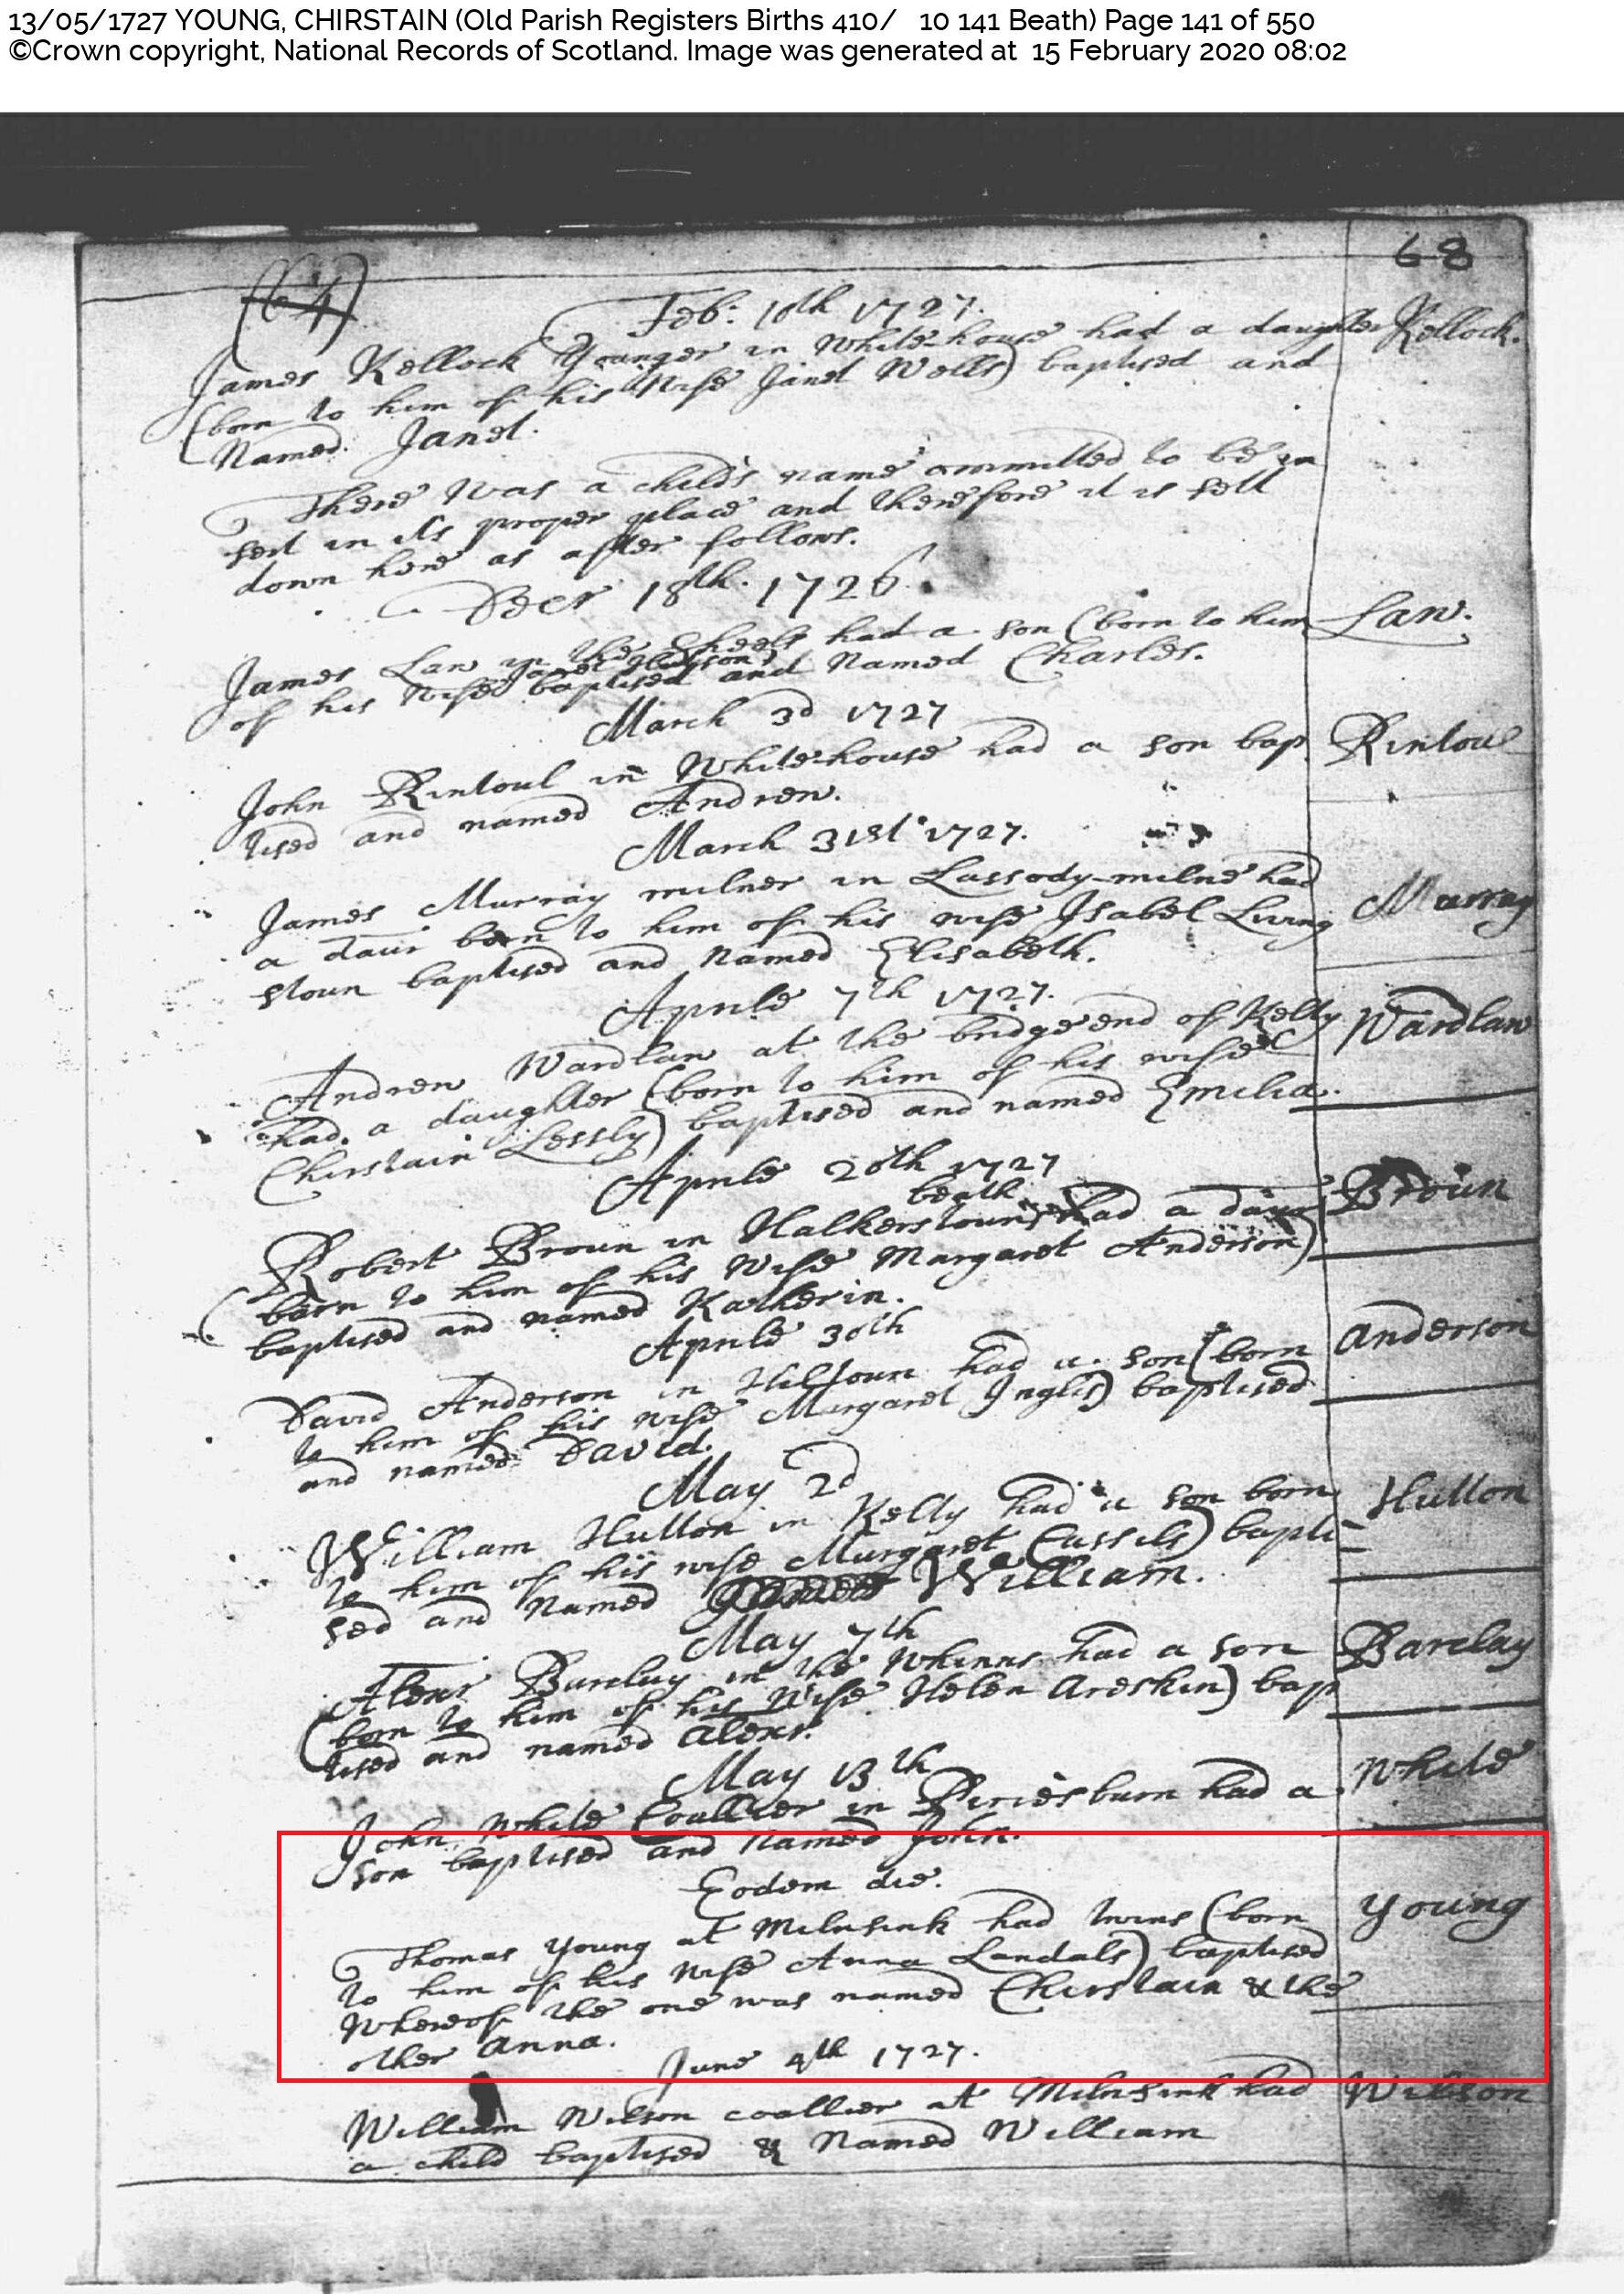 13/05/1727 YOUNG, CHIRSTAIN (Old Parish Registers Births 410/ 10 141 Beath) Page 141 of 550
©Crown copyright, National Records of Scotland. Image was generated at 15 February 2020 08:02
68
Feb: 10th 1727.
James Kellock Younger in White-house had a daughter Kellock.
(born to him of his Wife Janet Wells) baptised and
Named Janet.
There was a child's name ommitted to be in
sert in its proper place and therefore it is sett
down here as after follows.
Decr 18th. 1726.
James Law in the Sheels had a son (born to him Law.
of his Wife Janet baptised and Named Charles.
March 3d 1727
John Rintoul in White-house had a son bap Rintoul
tised and named Andrew.
March 31st 1727.
James Murray milner in Lassody-milne had Murray
a daur born to him of his wife Isabel Living
stoun baptised and Named Elisabeth.
Aprile 7th 1727.
Andrew Wardlaw at the bridge end of Kelty Wardlaw
had a daughter (born to him of his wife
Chirstain Lessly) baptised and named Emilia.
Aprile 20th 1727
beath
Robert Broun in Halkerstoun had a daur Broun
born to him of his Wife Margaret Anderson)
baptised and named Katherin.
Aprile 30th
David Anderson in Hiltoun had a son (born Anderson
to him of his wife Margaret Inglis) baptised
and named David.
May 2d
William Hutton in Kelty had a son born Hutton
to him of his wife Margaret Cassils) bapti
sed and Named William.
May 7th
Alexr Barclay in the Whinns had a son Barclay
(born to him of his Wife Helen Areskin) bap
tised and named Alexr.
May 13th
John White Coallier in Piriesburn had a White
son baptised and Named John.
Eodem die.
Thomas Young at Milnsink had twins (born Young
to him of his Wife Anna Landals) baptised
Whereof the one was named Chirstain & the
other Anna.
June 4th 1727.
William Wilson coallier at Milnsink had Wilson
a child baptised & Named William